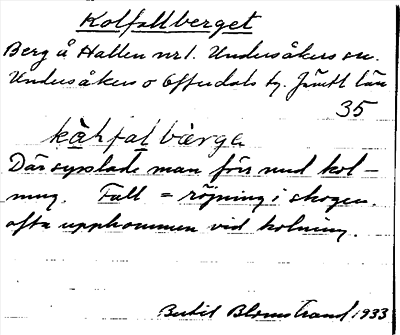 Kolfallberget
Berg å Hallen nr 1. Undersåkers sn.
Undersåkers o Offerdals tg. Jämtl län
35
kàhfal bárga
Där sysslade man förr med kol-
ning. Fall = röjning i skogen,
ofta uppkommen vid kolning.
Bertil Blomstrand 1933